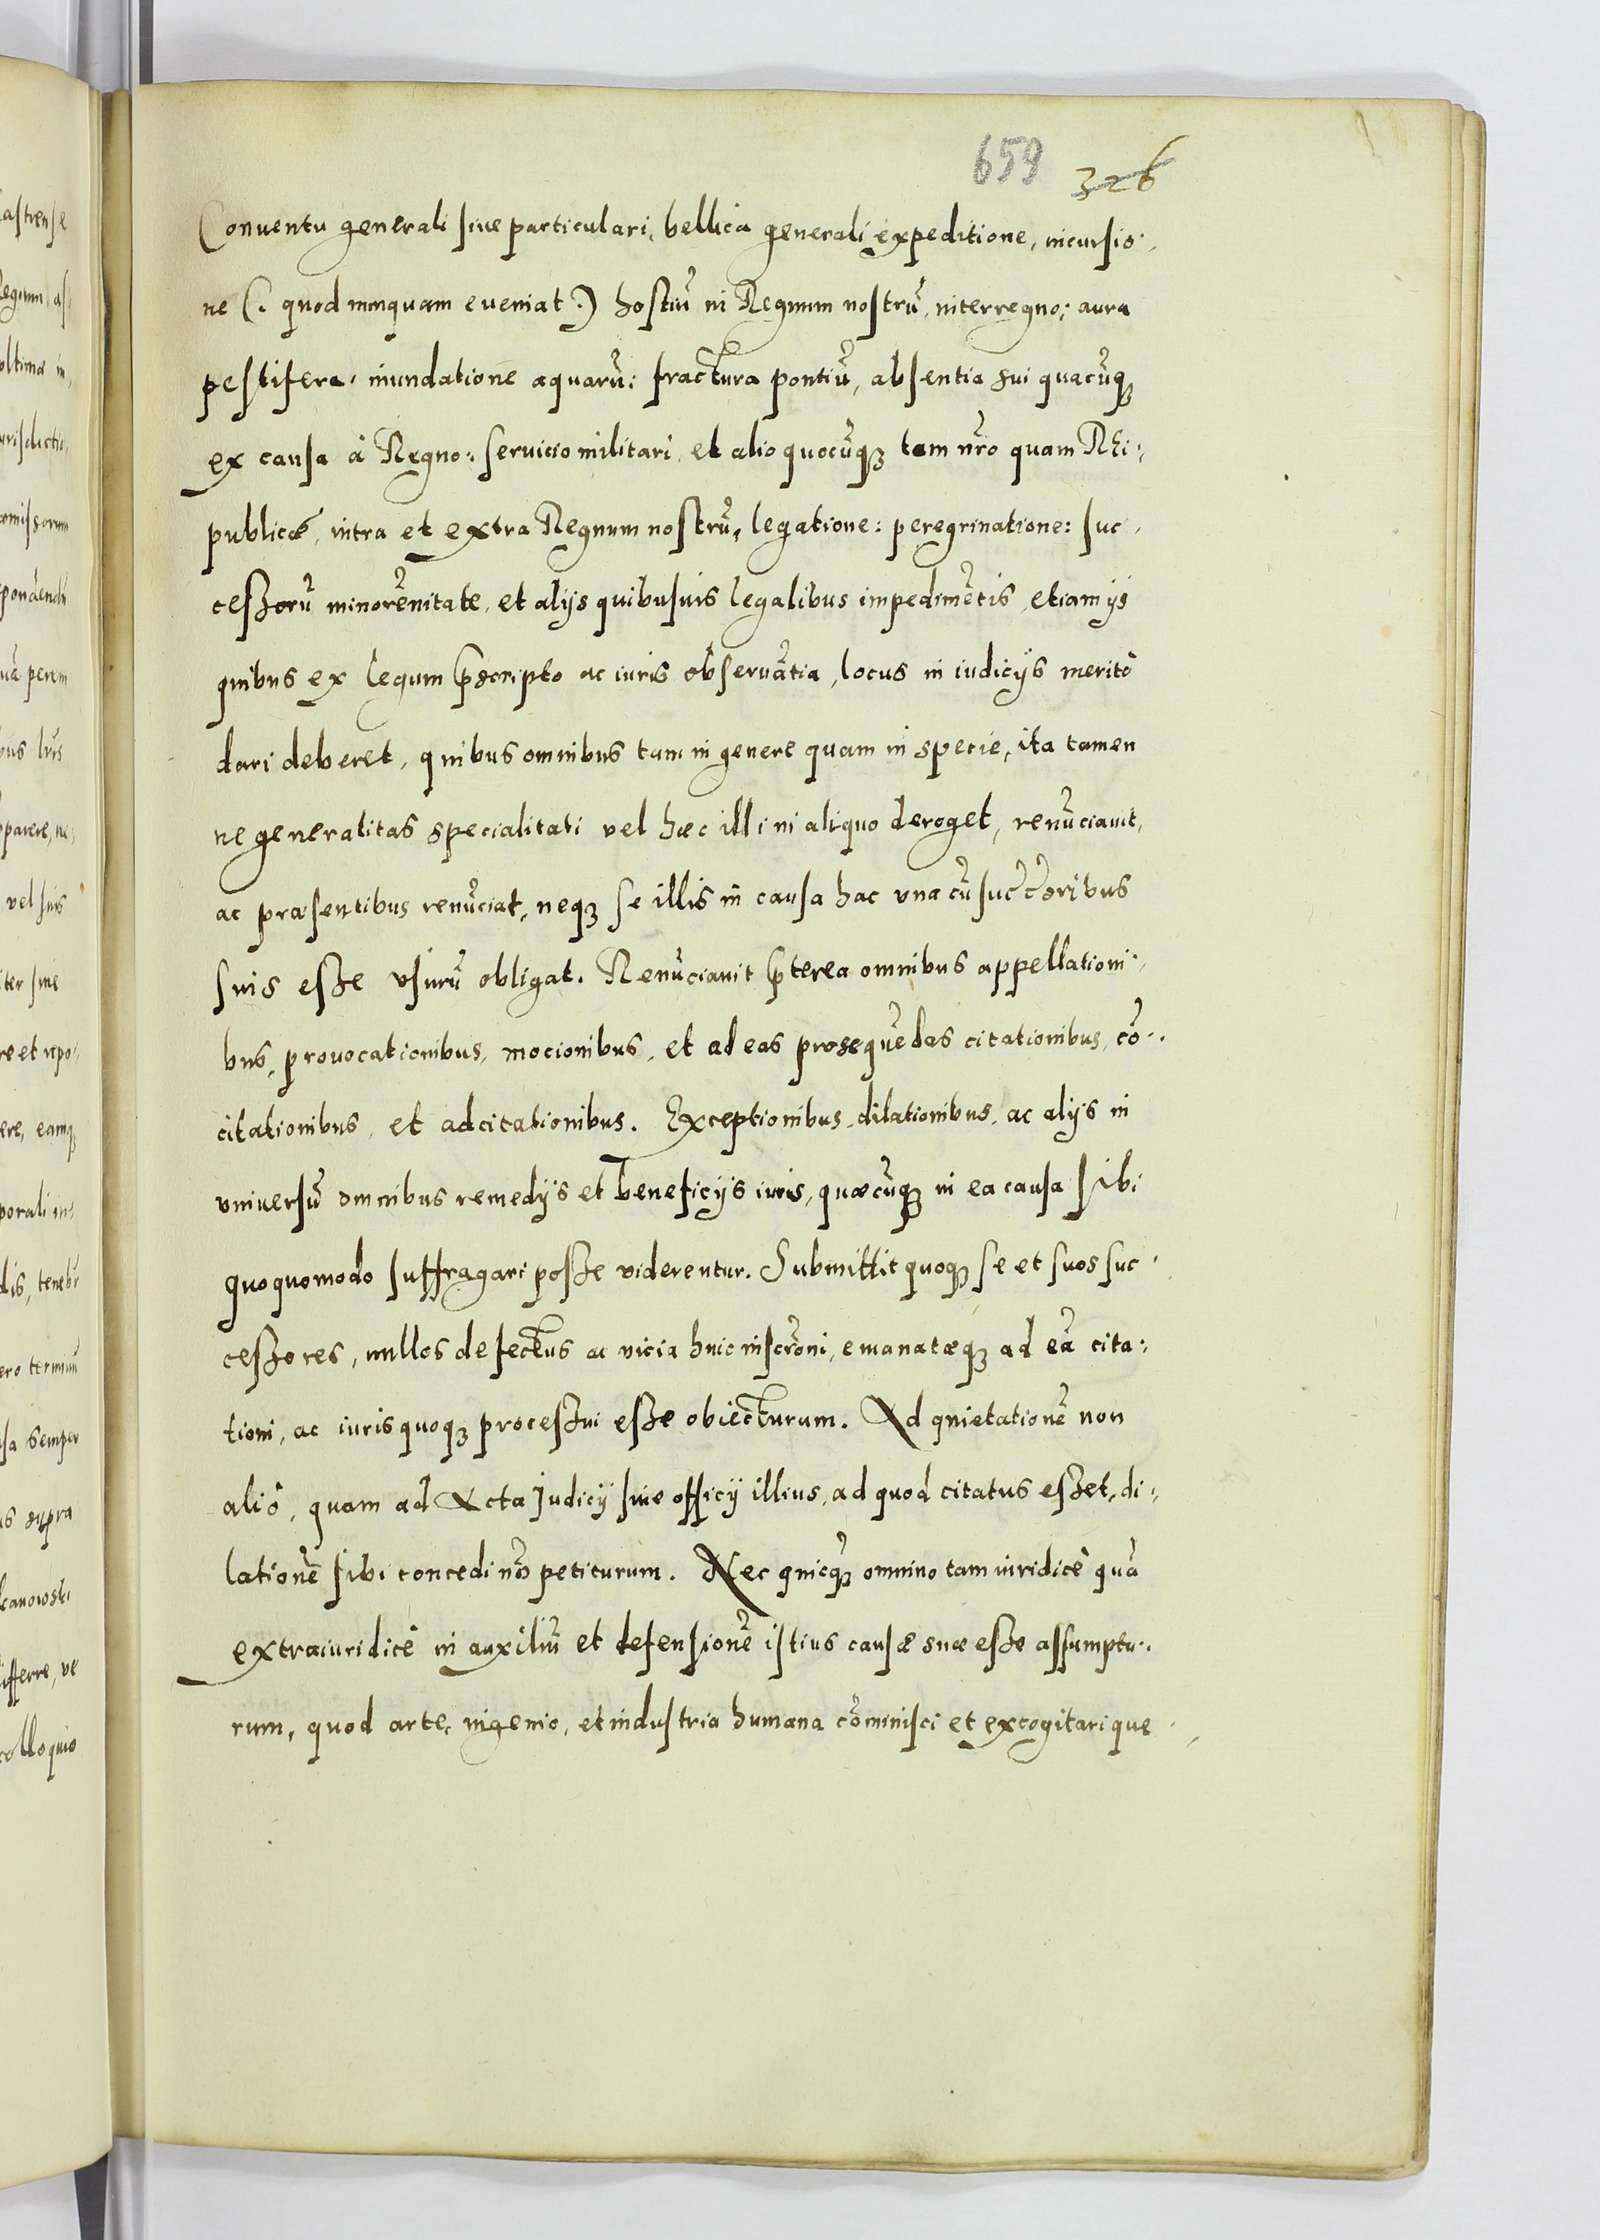 659 326
Conuentu generali siue particulari, bellica generali expeditione, incursio-
ne (. quod nunquam eueniat .) hostiũ in Regnum nostrũ, interregno, aura
pestifera, inundatione aquarũ, fractura pontiũ, absentia sui quacũq3
ex causa à Regno: seruicio militari, et alio quocũq3 tam nr̃o quam Rei-
publicæ, intra et extra Regnum nostrũ, legatione: peregrinatione: suc-
ceßorũ minorẽnitate, et alijs quibusuis legalibus impedimẽtis, etiam ijs
quibus ex legum p̱scripto ac iuris obseruãtia, locus in iudicijs meritò
dari deberet, quibus omnibus tam in genere quam in specie, ita tamen
ne generalitas specialitati vel hæc illi in aliquo deroget, renũciauit,
ac præsentibus renũciat, neq3 se illis in causa hac vna cũ succ̃oribus
suis eße vsurũ obligat. Renũciauit p̱terea omnibus appellationi-
bus, prouocationibus, mocionibus, et ad eas prosequẽdas citationibus, cõ-
citationibus, et adcitationibus. Exceptionibus, dilationibus, ac alijs in
vniuersũ omnibus remedijs et beneficijs iuris, quæcũq3 in ea causa sibi
quoquomodo suffragari poße viderentur. Submittit quoq3 se et suos suc-
ceßores, nullos defectus ac vicia huic inscr̃oni, emanatæq3 ad eã cita-
tioni, ac iuris quoq3 proceßui eße obiecturum. Ad quietationẽ non
aliò, quam ad Acta Judicij siue officij illius, ad quod citatus eßet, di-
lationẽ sibi concedi nõ petiturum. Nec quicq̃3 omnino tam iuridicè quã
extraiuridicè in auxiliũ et defensionẽ istius causæ suæ eße assumptu-
rum, quod arte, ingenio, et industria humana cõminisci et excogitari que-